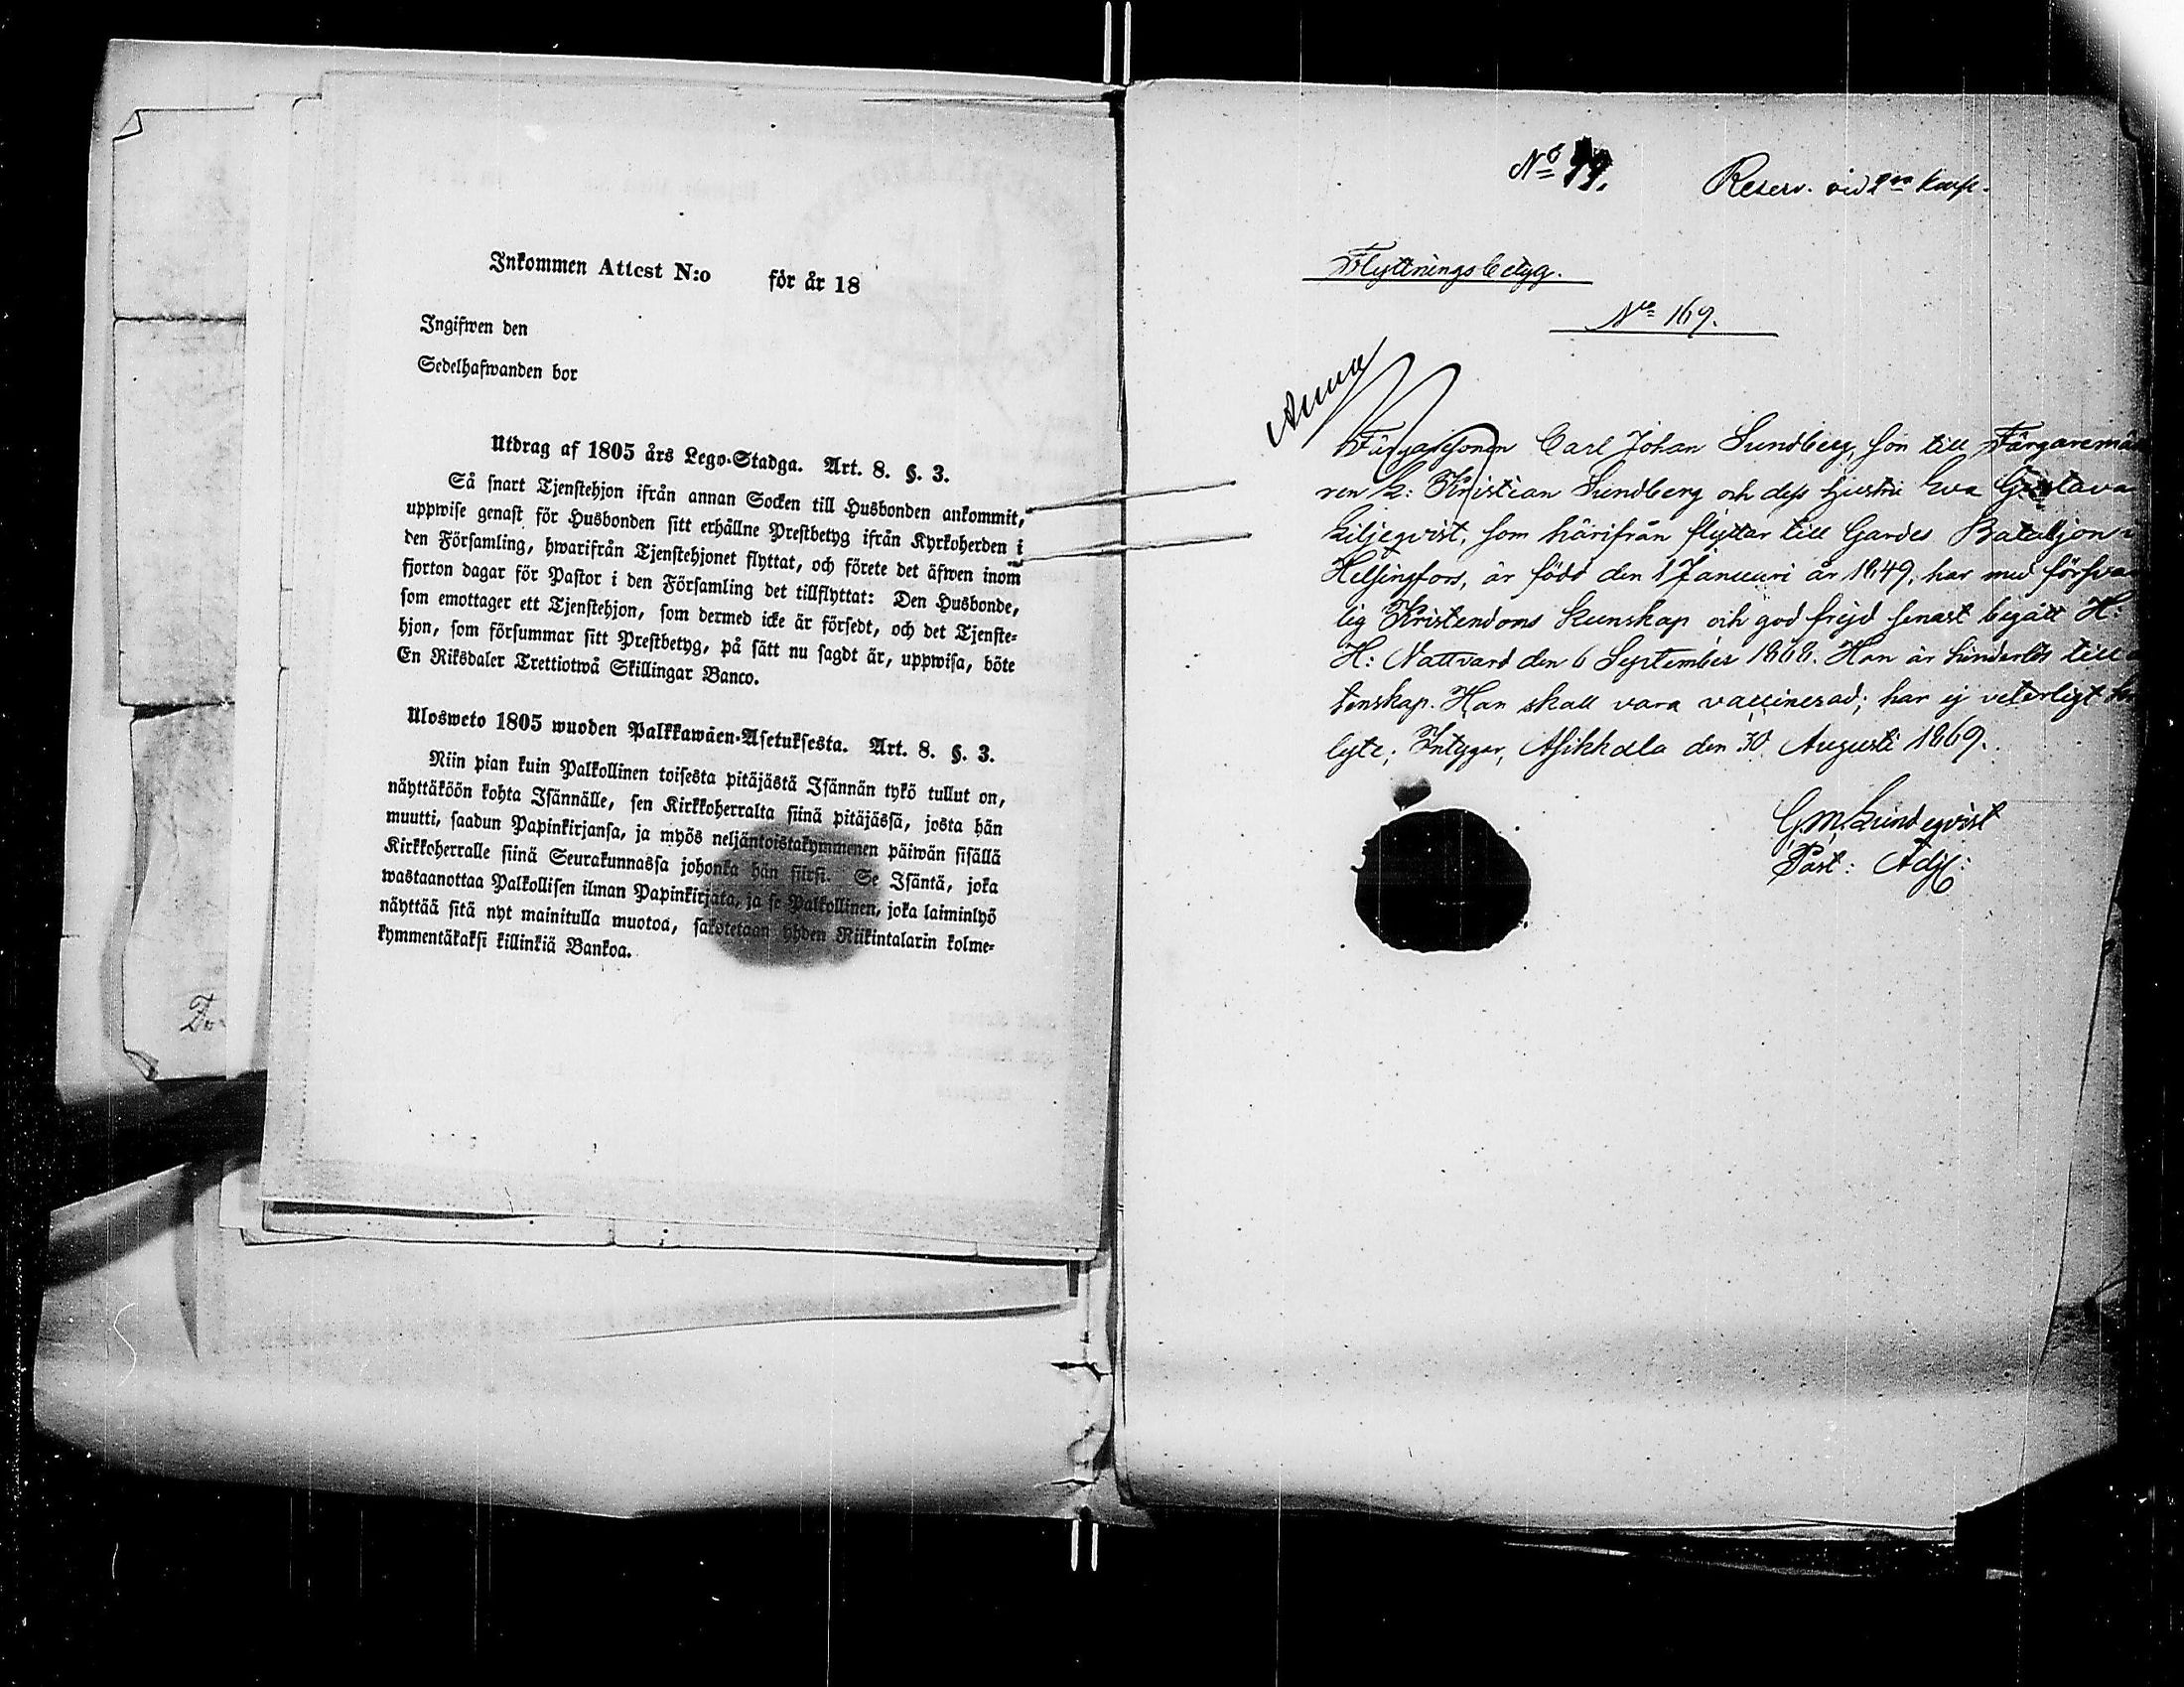 Inkommen Attest N:o för år 18
Ingifwen den
Sedelhafwanden bor
Utdrag af 1805 års Lego-Stadga. Art. 8. §. 3.
Så snart Tjenstehjon ifrån annan Socken till Husbonden ankommit,
uppwise genast för Husbonden sitt erhållne Prestbetyg ifrån Kyrkoherden i
den Församling, hwarifrån Tjenstehjonet flyttat, och förete det äfwen inom
fjorton dagar för Pastor i den Församling det tillflyttat: Den Husbonde,
som emottager ett Tjenstehjon, som dermed icke är försedt, och det Tjenste-
hjon, som försummar sitt Prestbetyg, på sätt nu sagdt är, uppwisa, böte
En Riksdaler Trettiotwå Skillingar Banco.
Ulosweto 1805 wuoden Palkkawäen-Asetuksesta. Art. 8. §. 3.
Niin pian kuin Palkollinen toisesta pitäjästä Isännän tykö tullut on,
näyttäköön kohta Isännälle, sen Kirkkoherralta siinä pitäjässä, josta hän
muutti, saadun Papinkirjansa, ja myös neljäntoistakymmenen päiwän sisällä
Kirkkoherralle siinä Seurakunnassa johonka hän siirsi. Se Isäntä, joka
wastaanottaa Palkollisen ilman Papinkirjata, ja se Palkollinen, joka laiminlyö
näyttää sitä nyt mainitulla muotoa, sakotetaan yhden Riikintalarin kolme-
kymmentäkaksi killinkiä Bankoa.
No
Reserv. vid
Flyttningsbetyg.
No 169.
Anna
Carl Johan Sundberg, son till Färgaremä
ren K: Kristian Sundberg och dess hustru Eva Gustava
Liljeqvist, som härifrån flyttar till Gardes Bataljon i
Helsingfors, är född den 1 Januari år 1849, har med försva
lig Kristendoms kunskap och god frejd senast begått H:
H: Nattvard den 6 September 1868. Han är hinderlös till
tenskap. Han skall vara vaccinerad; har ej veterligt
lyte; Intygar, Asikkala den 30 Augusti 1869.
G.M. Lindeqvist
Past: Adj: